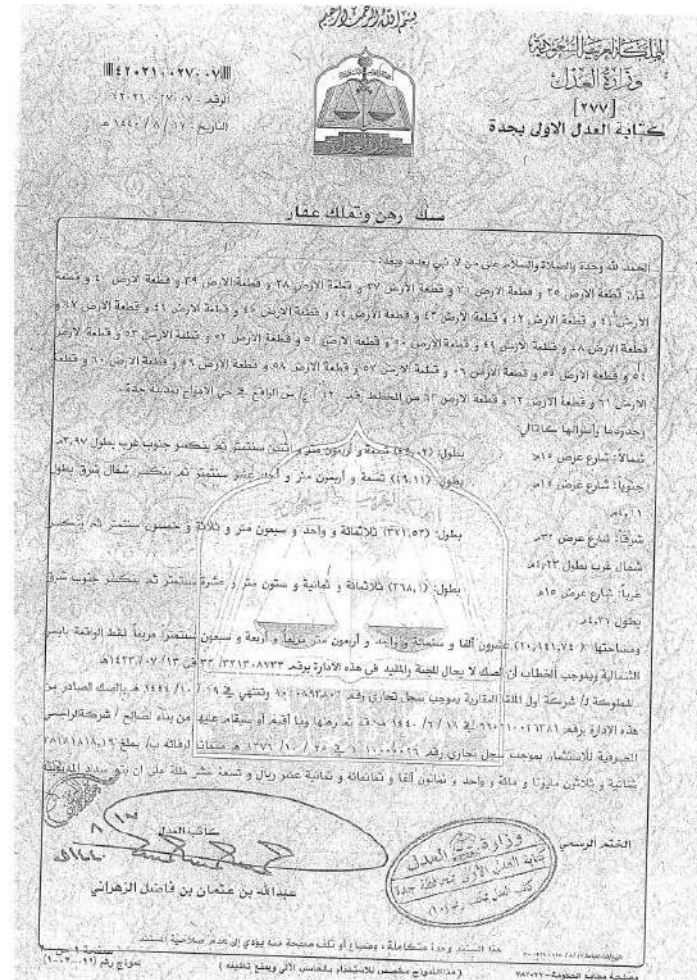 بسم الله الرحمن الرحيم
المملكة العربية السعودية
وزارة العدل
[٢٧٧]
كتابة العدل الاولى بجدة
٤٢٠٢١٠٠٢٧٠٠٧
الرقم: ٤٢٠٢١٠٠٢٧٠٠٧
التاريخ: ١٧ / ٨ / ١٤٤٠ هـ
صك رهن وتملك عقار
الحمد لله وحده والصلاة والسلام على من لا نبي بعده، وبعد:
فإن قطعة الارض ٣٥ و قطعة الارض ٣٦ و قطعة الارض ٣٧ و قطعة الارض ٣٨ و قطعة الارض ٣٩ و قطعة الارض ٤٠ و قطعة
الارض ٤١ و قطعة الارض ٤٢ و قطعة الارض ٤٣ و قطعة الارض ٤٤ و قطعة الارض و قطعة الارض و قطعة الارض ٤٧ و
قطعة الارض ٤٨ و قطعة الارض ٤٩ و قطعة الارض ٥٠ و قطعة الارض ٥١ و قطعة الارض ٥٢ و قطعة الارض ٥٣ و قطعة الارض
٥٤ و قطعة الارض ٥٥ و قطعة الارض ٥٦ و قطعة الارض ٥٧ و قطعة الارض ٥٨ و قطعة الارض ٥٩ و قطعة الارض ٦٠ و قطعة
الارض ٦١ و قطعة الارض ٦٢ و قطعة الارض ٦٣ من المخطط رقم الواقع في حي الامواج بمدينة جدة.
وحدودها وأطوالها كالتالي:
شمالاً: شارع عرض ١٥م بطول: (٤٩,٠٢) تسعة و أربعون متر و اثنين سنتمتر ثم ينكسر جنوب غرب بطول ٣,٩٧م
جنوباً: شارع عرض ١٥م بطول: (٤٩,١١) تسعة و أربعون متر و أحد عشر سنتمتر ثم ينكسر شمال شرق بطول
٤,١١م
شرقاً: شارع عرض ٣٢م بطول: (٣٧١,٥٣) ثلاثمائة و واحد و سبعون متر و ثلاثة و خمسون سنتمتر ثم ينكسر
شمال غرب بطول ٤,٢٣م
غرباً: شارع عرض ١٥م بطول: (٣٦٨,١) ثلاثمائة و ثمانية و ستون متر و عشرة سنتمتر ثم ينكسر جنوب شرق
بطول ٤,٣٦م
ومساحتها: (٢٠,١٤١,٧٤) عشرون ألفا و واحد و أربعون متر مربعاً و أربعة و سبعون سنتمتراً مربعاً فقط الواقعة بابحر
الشمالية وبموجب الخطاب أن الصك لا يحال للجنة والمقيد في هذه الادارة برقم ٣٣٤١٣٠٨٧٣٣ / ٣٣ في ١٣ / ٠٧ / ١٤٣٣هـ
المملوكة لـ/ شركة اول الملقا العقارية بموجب سجل تجاري رقم وتنتهي في ١٩ / ١٠ / ١٤٤٤ هـ بالصك الصادر من
هذه الإدارة برقم في ١٨ / ٦ / ١٤٤٠ هـ قد تم رهنها وما أقيم أو سيقام عليها من بناء لصالح / شركة الراجحي
المصرفية للاستثمار بموجب سجل تجاري رقم ١٠١٠٠٠٠٠٩٦ في ٢٥ / ١٠ / ١٣٧٦ هـ ضمانا لوفائه ب/ بمبلغ ٣٨١٨١٨١٨,١٩
ثمانية و ثلاثون مليونا و مائة و واحد و ثمانون ألفا و ثمانمائة و ثمانية عشر ريال و تسعة عشر هللة على ان يتم سداد المديونية
كاتب العدل
١٧
٨
١٤٤٠هـ
عبدالله بن عثمان بن فاضل الزهراني
الختم الرسمي
وزارة العدل
كتابة العدل الأولى بمحافظة جدة
هذا المستند وحدة متكاملة ، وضياع أو تلف صفحة منه يؤدي إلى عدم صلاحية المستند
مصلحة مطابع الحكومة - ٣٨٢٠٢٦
( هذا النموذج مخصص للاستخدام بالحاسب الآلي ويمنع تغليفه )
صفحة ١ من ٢